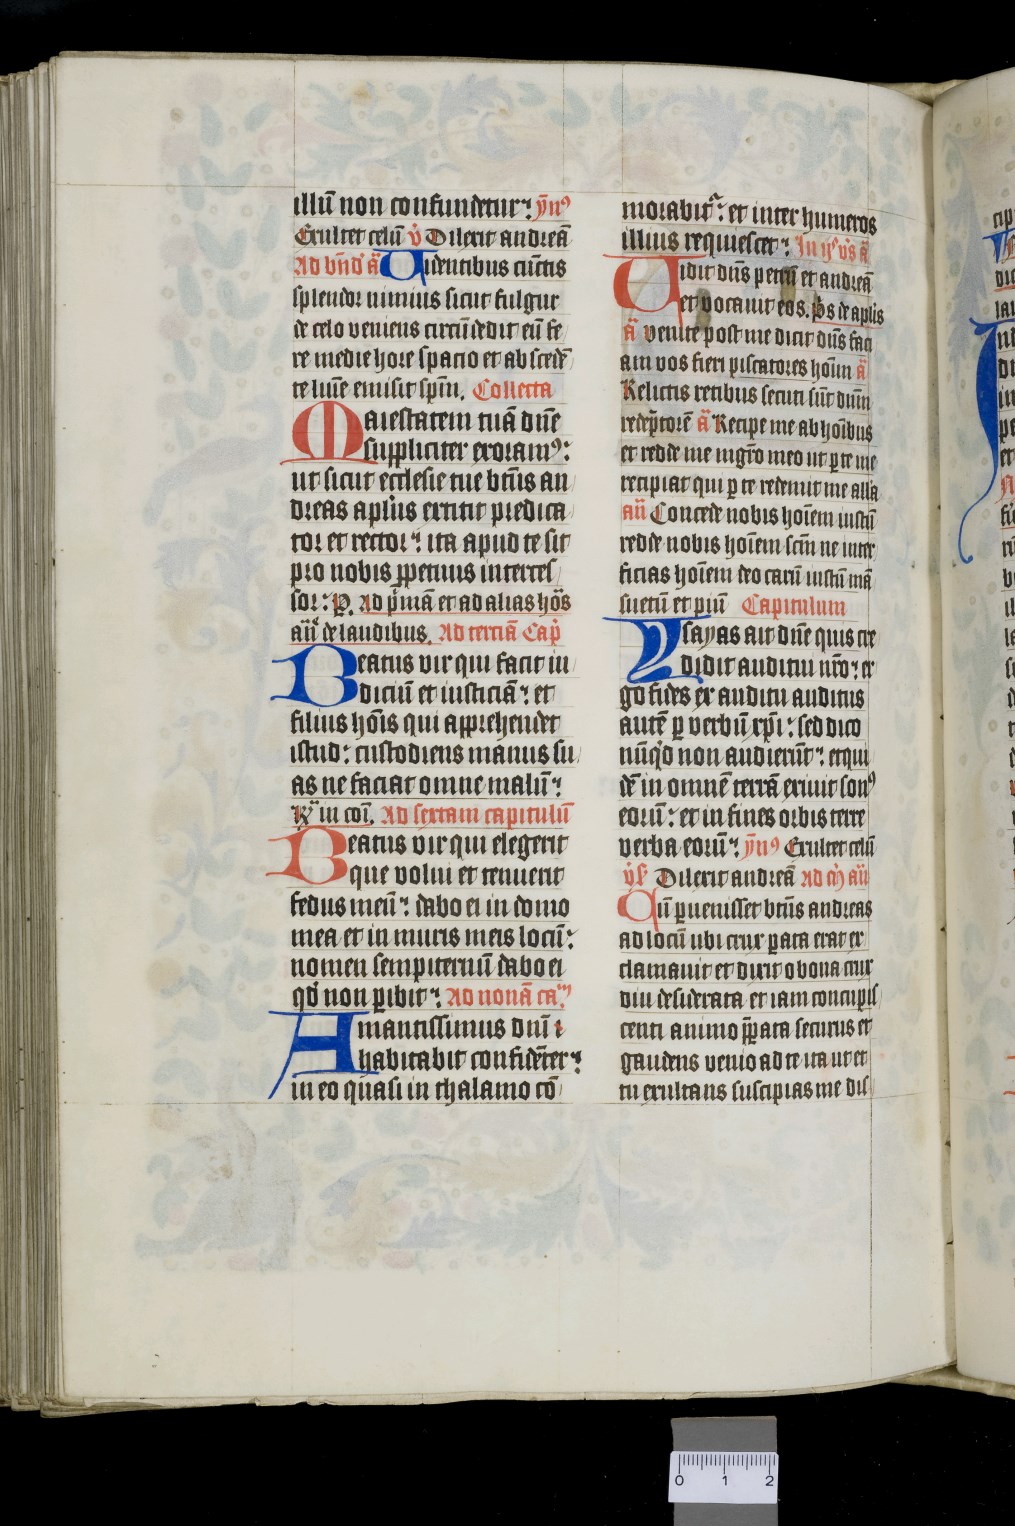 illū non confundetur: ȳnꝰ
Exultet celū v̇ Dilexit andreā
Ad bn̄d' ā Uidentibus cūctis
splendor nimius sicut fulgur
de celo veniens circūdedit eū fe
re medie hore spacio et abscedē
te lum̄e emisit sp̄m. Collecta
Maiestatem tuā dn̄e
suppliciter exoramꝰ:
ut sicut ecclesie tue bt̄us an
dreas apl̄us extitit predica
tor et rector: ita apud te sit
pro nobis ꝑpetuus interces
sor: P. Ad p̄mā et ad alias hō̄s
an̄ de laudibus. Ad terciā Cap̄
Beatus vir qui facit iu
diciū et iusticiā: et
filius hōis qui apprehendet
istud: custodiens manus su
as ne faciat omne malū:
R̄ in cōi. Ad sextam capitulū
Beatus vir qui elegerit
que volui et tenuerit
fedus meū: dabo ei in domo
mea et in muris meis locū:
nomen sempiternū dabo ei
qd̄ non ꝑibit: Ad nonā ca.
Amantissimus dn̄i
habitabit confidēter:
in eo quasi in thalamo cō
morabit: et inter humeros
illius requiescet: In ij vs ā
Uidit dn̄s petrū et andreā
et vocauit eos. p̄s de aplis
ā venite post me dicit dn̄s faci
am vos fieri piscatores hoīm ā
Relictis retibus secuti sūt dnm̄
redēptorē ā Recipe me ab hoībus
et redde me mgr̄o meo ut ꝑ te me
recipiat qui ꝑ te redemit me alla
an̄ Concede nobis hoīem iustū
redde nobis hoīem scm̄ ne inter
ficias hoīem deo carū iustū mā
suetū et piū Capitulum
Ysayas ait dn̄e quis cre
didit auditui nr̄o: er
go fides ex auditu auditus
autē ꝑ verbū xp̄i: sed dico
nūqd̄ non audierūt: et qui
dē in omnē terrā exiuit sonꝰ
eorū: et in fines orbis terre
verba eorū: ȳnꝰ Exultet celū
v̄s Dilexit andreā Ad m̄ an̄
Cū ꝑuenisset bt̄us andreas
ad locū ubi crux ꝑata erat ex
clamauit et dixit o bona crux
diu desiderata et iam concupis
centi animo p̄ꝑata securus et
gaudens venio ad te ita ut et
tu exultans suscipias me dis
0 1 2